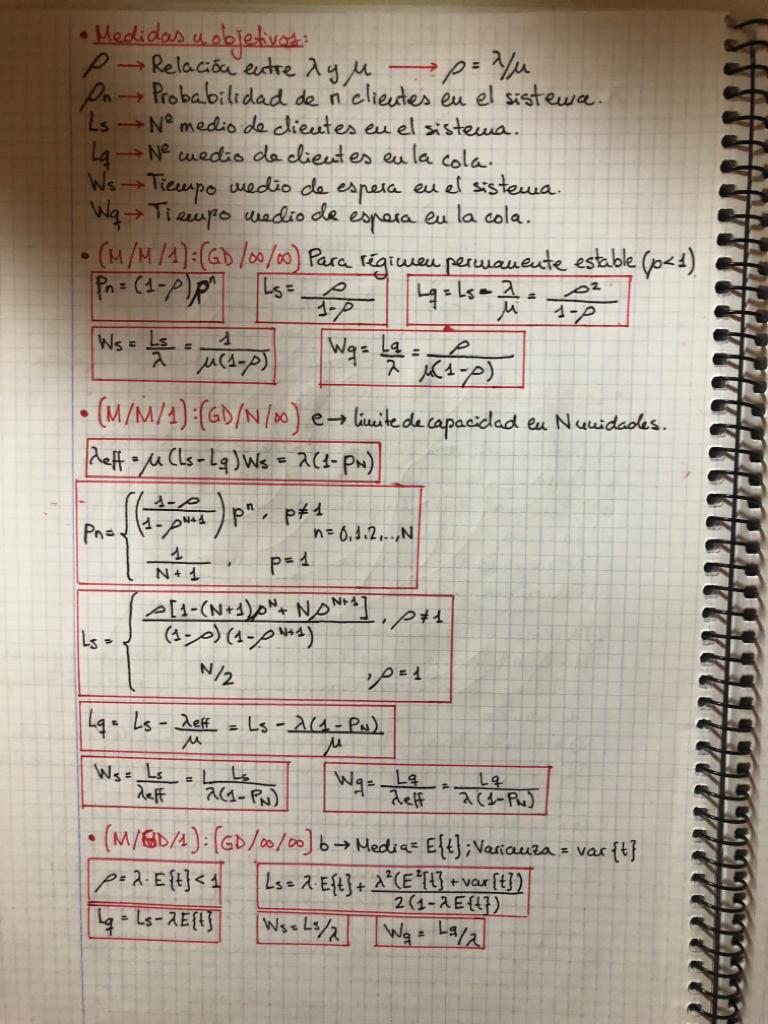 • Medidas u objetivos:
ρ → Relación entre λ y μ → ρ = λ/μ
ρn → Probabilidad de n clientes en el sistema.
Ls → Nº medio de clientes en el sistema.
Lq → Nº medio de clientes en la cola.
Ws → Tiempo medio de espera en el sistema.
Wq → Tiempo medio de espera en la cola.
• (M/M/1):(GD/∞/∞) Para régimen permanente estable (ρ<1)
Pn = (1-ρ)ρ^n   Ls = ρ/(1-ρ)   Lq = Ls - λ/μ = ρ²/(1-ρ)
Ws = Ls/λ = 1/(μ(1-ρ))   Wq = Lq/λ = ρ/(μ(1-ρ))
• (M/M/1):(GD/N/∞) e → límite de capacidad en N unidades.
λeff = μ(Ls-Lq)Ws = λ(1-PN)
Pn = { ((1-ρ)/(1-ρ^(N+1))) ρ^n, ρ≠1
n = 0,1,2,..,N
1/(N+1), ρ=1
Ls = { ρ[1-(N+1)ρ^N + Nρ^(N+1)]/((1-ρ)(1-ρ^(N+1))), ρ≠1
N/2, ρ=1
Lq = Ls - λeff/μ = Ls - λ(1-PN)/μ
Ws = Ls/λeff = Ls/(λ(1-PN))   Wq = Lq/λeff = Lq/(λ(1-PN))
• (M/GD/1):(GD/∞/∞) b → Media = E{t}; Varianza = var{t}
ρ = λ·E{t} < 1   Ls = λ·E{t} + λ²(E²{t} + var{t})/(2(1-λE{t}))
Lq = Ls-λE{t}   Ws = Ls/λ   Wq = Lq/λ